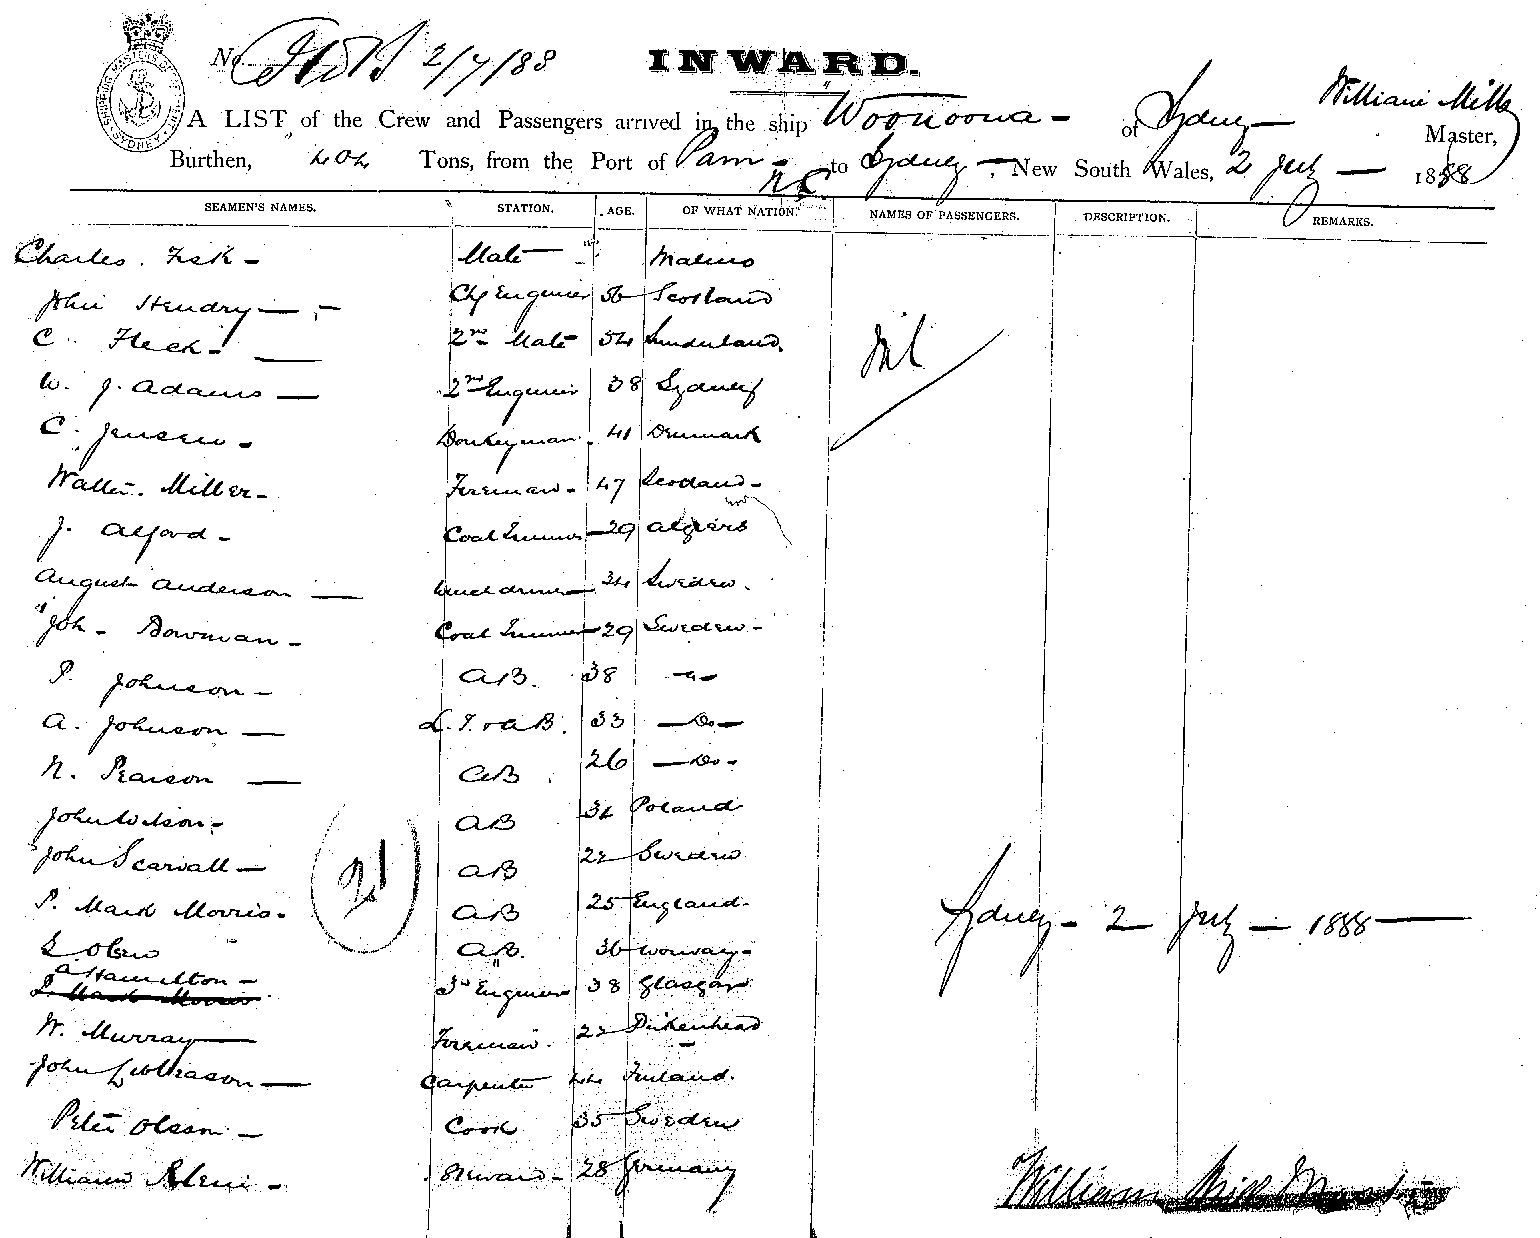 No. 2/7/88
INWARD.
A LIST of the Crew and Passengers arrived in the ship "Woonoona - of Sydney - William Mills Master,
Burthen, 404 Tons, from the Port of Pam - N.C to Sydney - New South Wales, 2 July - 1888
SEAMEN'S NAMES. STATION. AGE. OF WHAT NATION. NAMES OF PASSENGERS. DESCRIPTION. REMARKS.
Charles Fisk - Mate
John Hendry - Chf Engineer 56 Scotland
C. Fleck - 2nd Mate 54 Sunderland. Nil
W. J. Adams - 2nd Engineer 38 Sydney
C. Jensen - Donkeyman 41 Denmark
Walter Miller - Fireman - 47 Scotland -
J. Alford - Coal Trimmer 29 Algiers
August Anderson - 34 Sweden.
Joh - Bowman - Coal Trimmer 29 Sweden -
P. Johnson - AB. 38 - " -
A. Johnson - L.T. & AB. 33 - Do -
N. Pearson - AB. 26 - Do -
John Wilson - AB Poland
John Scarvall - AB 22 Sweden
21
P. Mark Morris - AB 25 England - Sydney - 2 July - 1888
Olsen AB. 36 Norway -
A Hamilton - 3rd Engineer 38 Glasgow
P. Mark Morris
W. Murray - Fireman. 22 Birkenhead
John - Carpenter 44 Finland.
Peter Olsson - Cook 35 Sweden
William - Steward - 28 Germany
William Mills Master